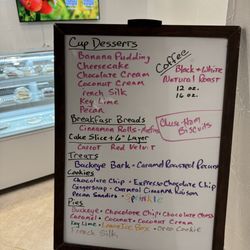 Cup Desserts
Banana Pudding
Cheesecake
Chocolate Cream
Coconut Cream
French Silk
Key Lime
Pecan
Coffee
Black & White
Natural Roast
12 oz.
16 oz.
Breakfast Breads
Cinnamon Rolls - Muffins
Cheese-Ham
Biscuits
Cake Slice + 6" Layer
Carrot Red Velvet
Treats
Buckeye Bark - Caramel Roasted Pecans
Cookies
Chocolate Chip - Espresso Chocolate Chip
Gingersnap - Oatmeal Cinnamon Raisin
Pecan Sandies - Sprinkle
Pies
Buckeye - Chocolate Chip - Chocolate Chess
Caramel - Coconut - Coconut Cream
Key Lime - Lemon Ice Box - Oreo Cookie
French Silk